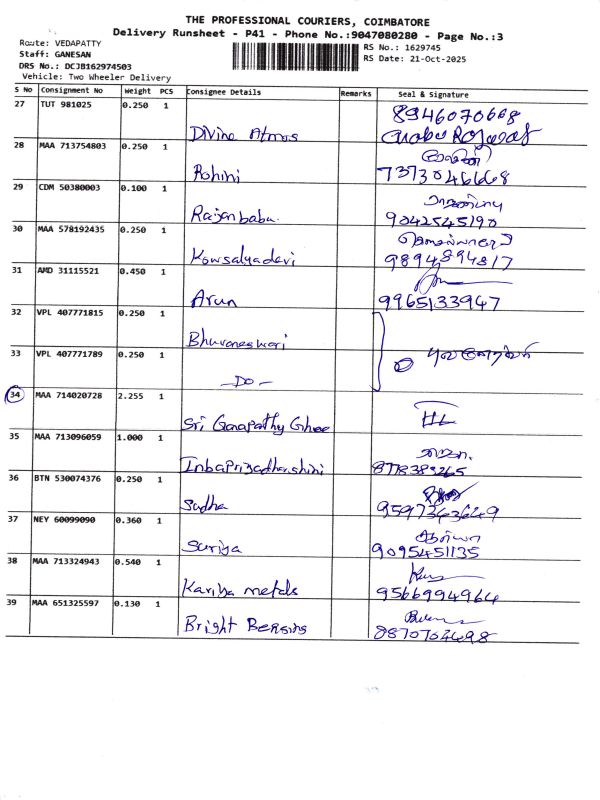 THE PROFESSIONAL COURIERS, COIMBATORE
Delivery Runsheet - P41 - Phone No.:9047080280 - Page No.:3
Route: VEDAPATTY
RS No.: 1629745
Staff: GANESAN
RS Date: 21-Oct-2025
DRS No.: DCJB162974503
Vehicle: Two Wheeler Delivery
S No Consignment No Weight PCS Consignee Details Remarks Seal & Signature
27 TUT 981025 0.250 1
8946070668
Divine Atmos
28 MAA 713754803 0.250 1
Rohini 7373046668
29 CDM 50380003 0.100 1
Rajanbabu 9042545190
30 MAA 578192435 0.250 1
Kowsalyadevi 9894894817
31 AMD 31115521 0.450 1
Arun 9965133947
32 VPL 407771815 0.250 1
Bhuvaneswari
33 VPL 407771789 0.250 1
-Do-
34 MAA 714020728 2.255 1
Sri Ganapathy Ghee
35 MAA 713096059 1.000 1
Inbapriyadharshini 8778389265
36 BTN 530074376 0.250 1
Sudha 9597343649
37 NEY 60099090 0.360 1
Suriya 9095451135
38 MAA 713324943 0.540 1
Kariya metals 9566994964
39 MAA 651325597 0.130 1
Bright Bearins 8870704698